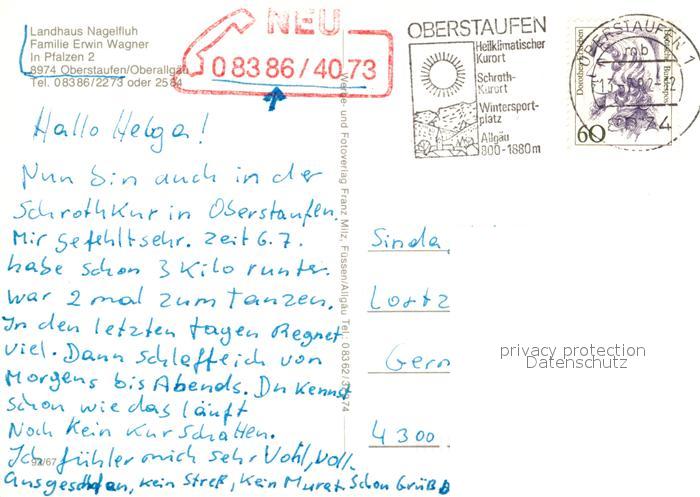 Landhaus Nagelfluh
Familie Erwin Wagner
In Pfalzen 2
8974 Oberstaufen/Oberallgäu
Tel. 08386/2273 oder 2584
NEU
08386/4073
OBERSTAUFEN
Heilklimatischer
Kurort
Schroth-
Kurort
Wintersport-
platz
Allgäu
800-1880m
OBERSTAUFEN 1
Deutsche Bundespost
60
Hallo Helga!
Nun bin auch in der
Schrothkur in Oberstaufen.
Mir gefehltsehr. Zeit 6.7.
habe schon 3 Kilo runter.
war 2 mal zum Tanzen.
In den letzten tagen Regnet
viel. Dann schlaffe ich von
Morgens bis Abends. Du kennst
schon wie das läuft
Noch kein Kurschatten.
Ich fühler mich sehr Vohl, voll.
Ausgeschlafen, kein Streß, kein Schon Grüß
Werbe- und Fotoverlag Franz Milz, Füssen/Allgäu Tel.: 08362/
Sinda,
Lortz
Gern
4300
privacy protection
Datenschutz